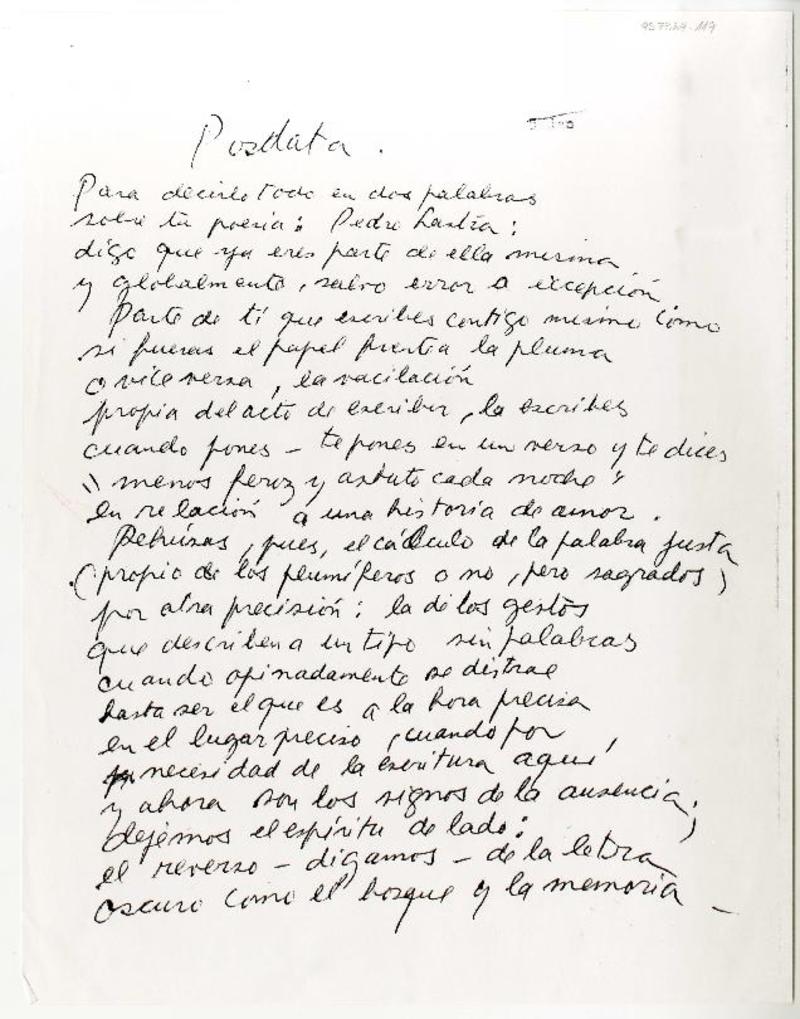 Posdata.
Para decirlo todo en dos palabras
sobre tu poesía: Pedro Lastra:
digo que ya eres parte de ella misma
y globalmente, salvo error o excepción
Parte de ti que escribes contigo mismo como
si fueras el papel frente a la pluma
o viceversa, la vacilación
propia del acto de escribir, la escribes
cuando pones – te pones en un verso y te dices
"menos feroz y astuto cada noche"
en relación a una historia de amor.
Rehúsas, pues, el cálculo de la palabra justa
(propio de los plumíferos o no, pero sagrados)
por otra precisión: la de los gestos
que describen a un tipo sin palabras
cuando opinadamente se distrae
hasta ser el que es a la hora precisa
en el lugar preciso, cuando por
necesidad de la escritura aquí
y ahora son los signos de la ausencia;
dejemos el espíritu de lado:
el reverso – digamos – de la letra
oscuro como el bosque y la memoria –